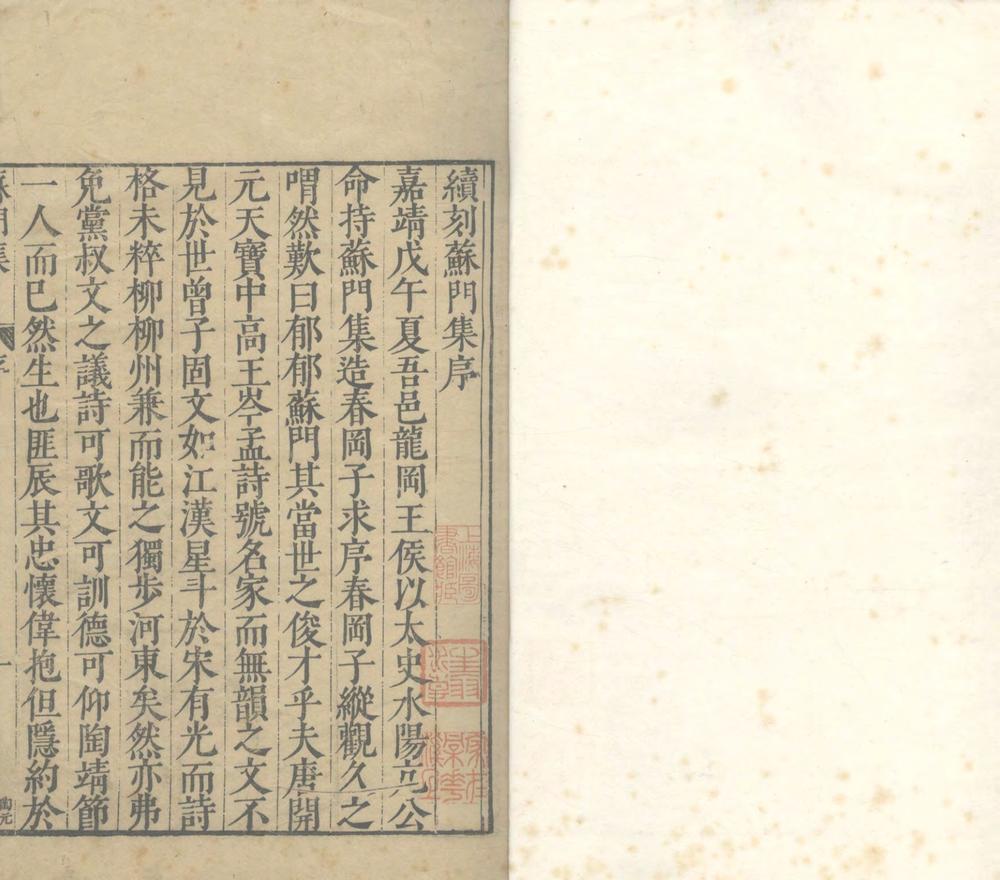 續刻蘇門集序
嘉靖戊午夏吾邑龍岡王侯以太史水陽亢公
命持蘇門集造春岡子求序春岡子縱觀久之
喟然歎曰郁郁蘇門其當世之俊才乎夫唐開
元天寶中高王岑孟詩號名家而無韻之文不
見於世曾子固文如江漢星斗於宋有光而詩
格未粹柳柳州兼而能之獨步河東矣然亦弗
免黨叔文之議詩可歌文可訓德可仰陶靖節
一人而巳然生也匪辰其忠懷偉抱但隱約於
蘇門集
序
一
上海圖書館藏